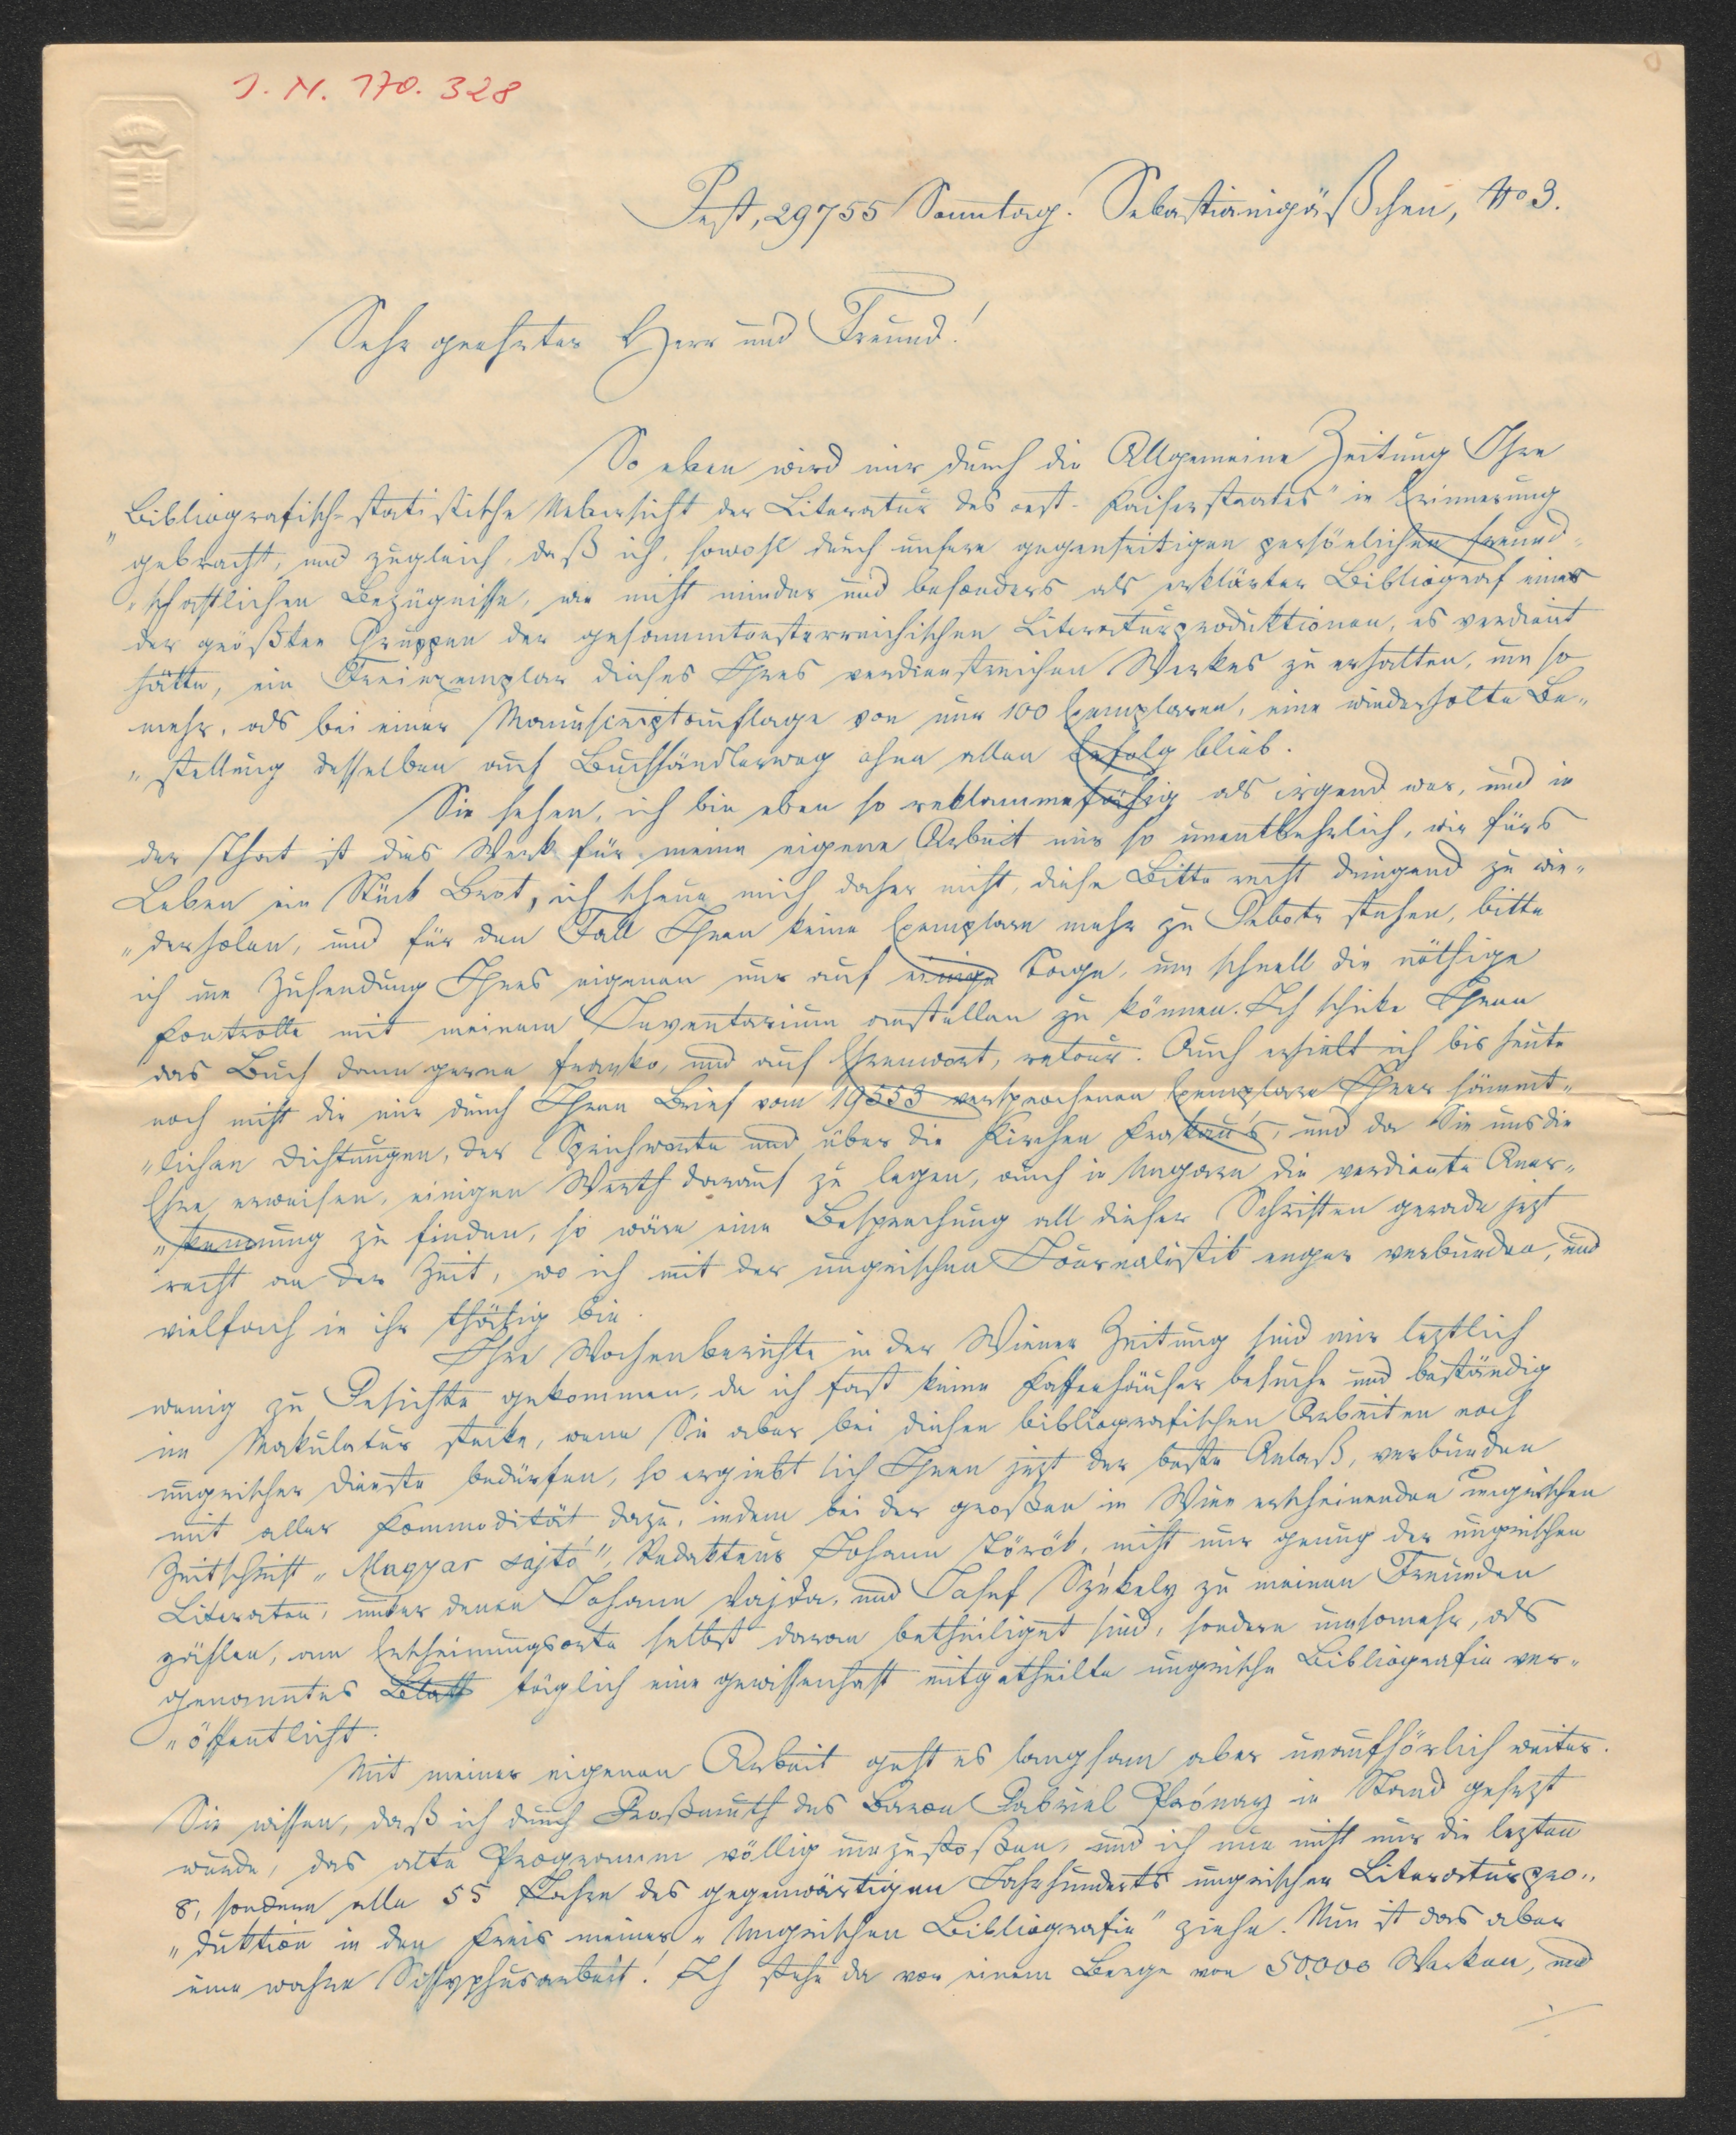 J. N. 170.328
Pest, 29755 Sonntag. Sebastianigäßchen, No 3.
Sehr geehrter Herr und Freund!
So eben wird mir durch die Allgemeine Zeitung Ihre
„Bibliografisch-statistische Uebersicht der Literatur des oest. Kaiserstaates" in Erinnerung
gebracht, und zugleich, daß ich, sowohl durch unsere gegenseitigen persönlichen freund-
„schaftlichen Bezügnisse, wie nicht minder und besonders als erklärter Bibliograf einer
der größten Gruppen der gesammtoesterreichischen Literaturproduktionen, es verdient
hätte, ein Freiexemplar dieses Ihres verdienstreichen Werkes zu erhalten, um so
mehr, als bei einer Manuscriptauflage von nur 100 Exemplaren, eine wiederholte Be„
„stellung desselben auf Buchhändlerweg ohne allen Erfolg blieb.
Sie sehen, ich bin eben so reklammefähig als irgend wer, und in
der That ist dies Werk für meine eigene Arbeit mir so unentbehrlich, wie fürs
Leben ein Stück Brot, ich scheue mich daher nicht, diese Bitte recht dringend zu wie„
„derholen, und für den Fall Ihnen keine Exemplare mehr zu Gebote stehen, bitte
ich um Zusendung Ihres eigenen nur auf einige Tage, um schnell die nöthige
Kontrolle mit meinem Inventarium anstellen zu können. Ich schicke Ihnen
das Buch dann gerne franko, und auf Ehrenwort, retour. Auch erhielt ich bis heute
noch nicht die mir durch Ihren Brief vom 19553 versprochenen Exemplare Ihrer sämmt„
„lichen Dichtungen, der Sprichworte und über die Kirchen Krakau's, und da Sie uns die
Ehre erweisen, einigen Werth darauf zu legen, auch in Ungarn die verdiente Aner„
„kennung zu finden, so wäre eine Besprechung all dieser Schriften gerade jezt
recht an der Zeit, wo ich mit der ungrischen Journalistik enger verbunden, und
vielfach in ihr thätig bin.
Ihre Wochenberichte in der Wiener Zeitung sind mir leztlich
wenig zu Gesichte gekommen, da ich fast keine Kaffeehäuser besuche und beständig
im Makulatur stecke, wenn Sie aber bei diesen bibliografischen Arbeiten noch
ungrischer Dienste bedürfen, so ergiebt sich Ihnen jezt der beste Anlaß, verbunden
mit aller Kommodität dazu, indem bei der großen in Wien erscheinenden ungrischen
Zeitschrift „Magyar sajtó", Redakteur Johann Török, nicht nur genug der ungrischen
Literaten, unter denen Johann Vajda, und Josef Székely zu meinen Freunden
zählen, am Erscheinungsorte selbst daran betheiliget sind, sondern umsomehr, als
genanntes Blatt täglich eine gewissenhaft mitgetheilte ungrische Bibliografie ver„
„öffentlicht.
Mit meiner eigenen Arbeit geht es langsam aber unaufhörlich weiter.
Sie wissen, daß ich durch Großmuth des Baron Gabriel Prónay in Stand gesezt
wurde, das alte Programm völlig umzustoßen, und ich nun nicht nur die lezten
8, sondern alle 55 Jahre des gegenwärtigen Jahrhunderts ungrischer Literaturpro„
„duktion in den Kreis meiner „Ungrischen Bibliografie" ziehe. Nun ist das aber
eine wahre Sissyphusarbeit! Ich stehe da vor einem Berge von 50,000 Werken, und
./.